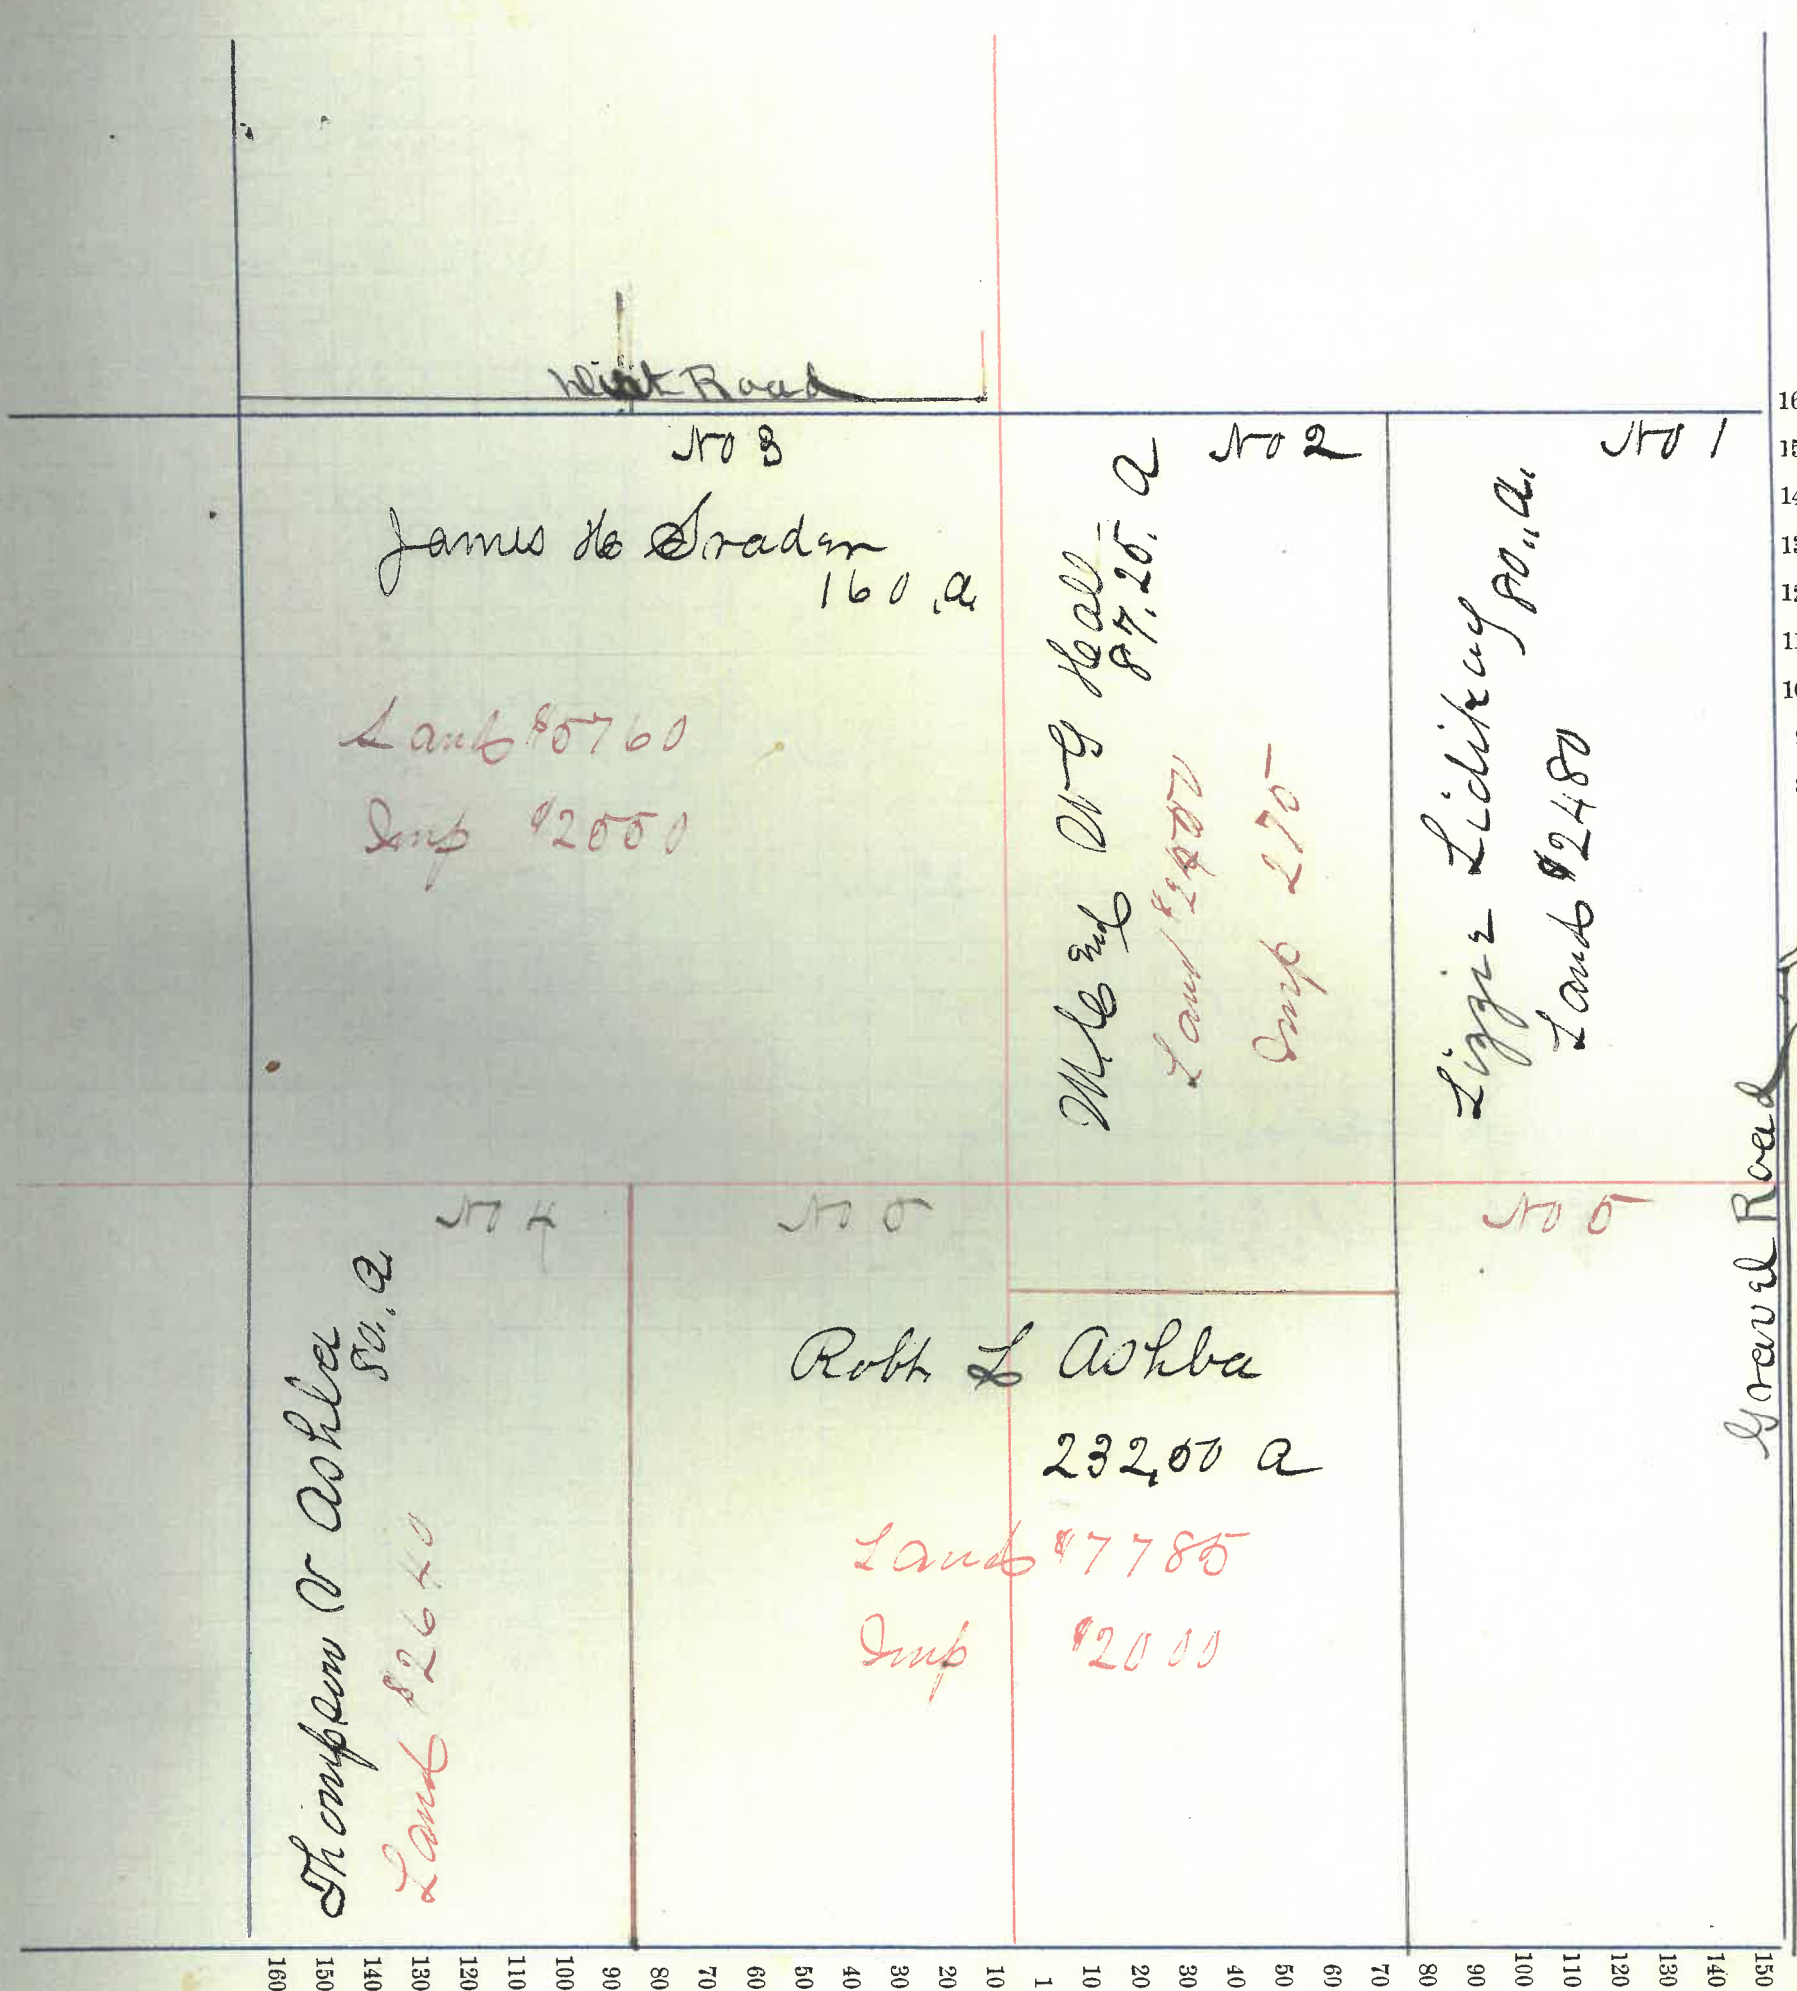 Dirt Road
No 3
James H Srader
160. a.
Land $5760
Imp $2000
No 2
W G Hall
87.25. a
Imp 270
No 1
Lizzie
80.. a.
Land $2480
Gravel Road
No 4
Thompson V Ashba
80.. a
Land $2640
No 5
No 5
Robt L Ashba
232,00 a
Land $7785
Imp $2000
160 150 140 130 120 110 100 90 80 70 60 50 40 30 20 10 1 10 20 30 40 50 60 70 80 90 100 110 120 130 140 150